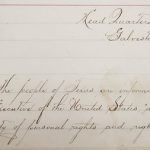 Head Quarters
Galvest
the people of Texas are inform
Executive of the United States, a
ty of personal rights and righ